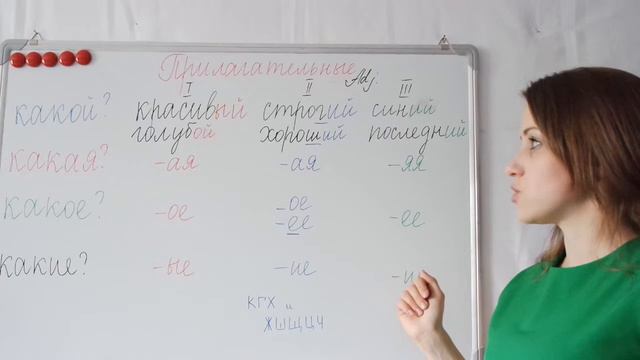 Прилагательные Adj.
I II III
какой? красивый строгий синий
голубой хороший последний
какая? -ая -ая -яя
какое? -ое -ое -ее
-ее
какие? -ые -ие
кгх и
жшщцч